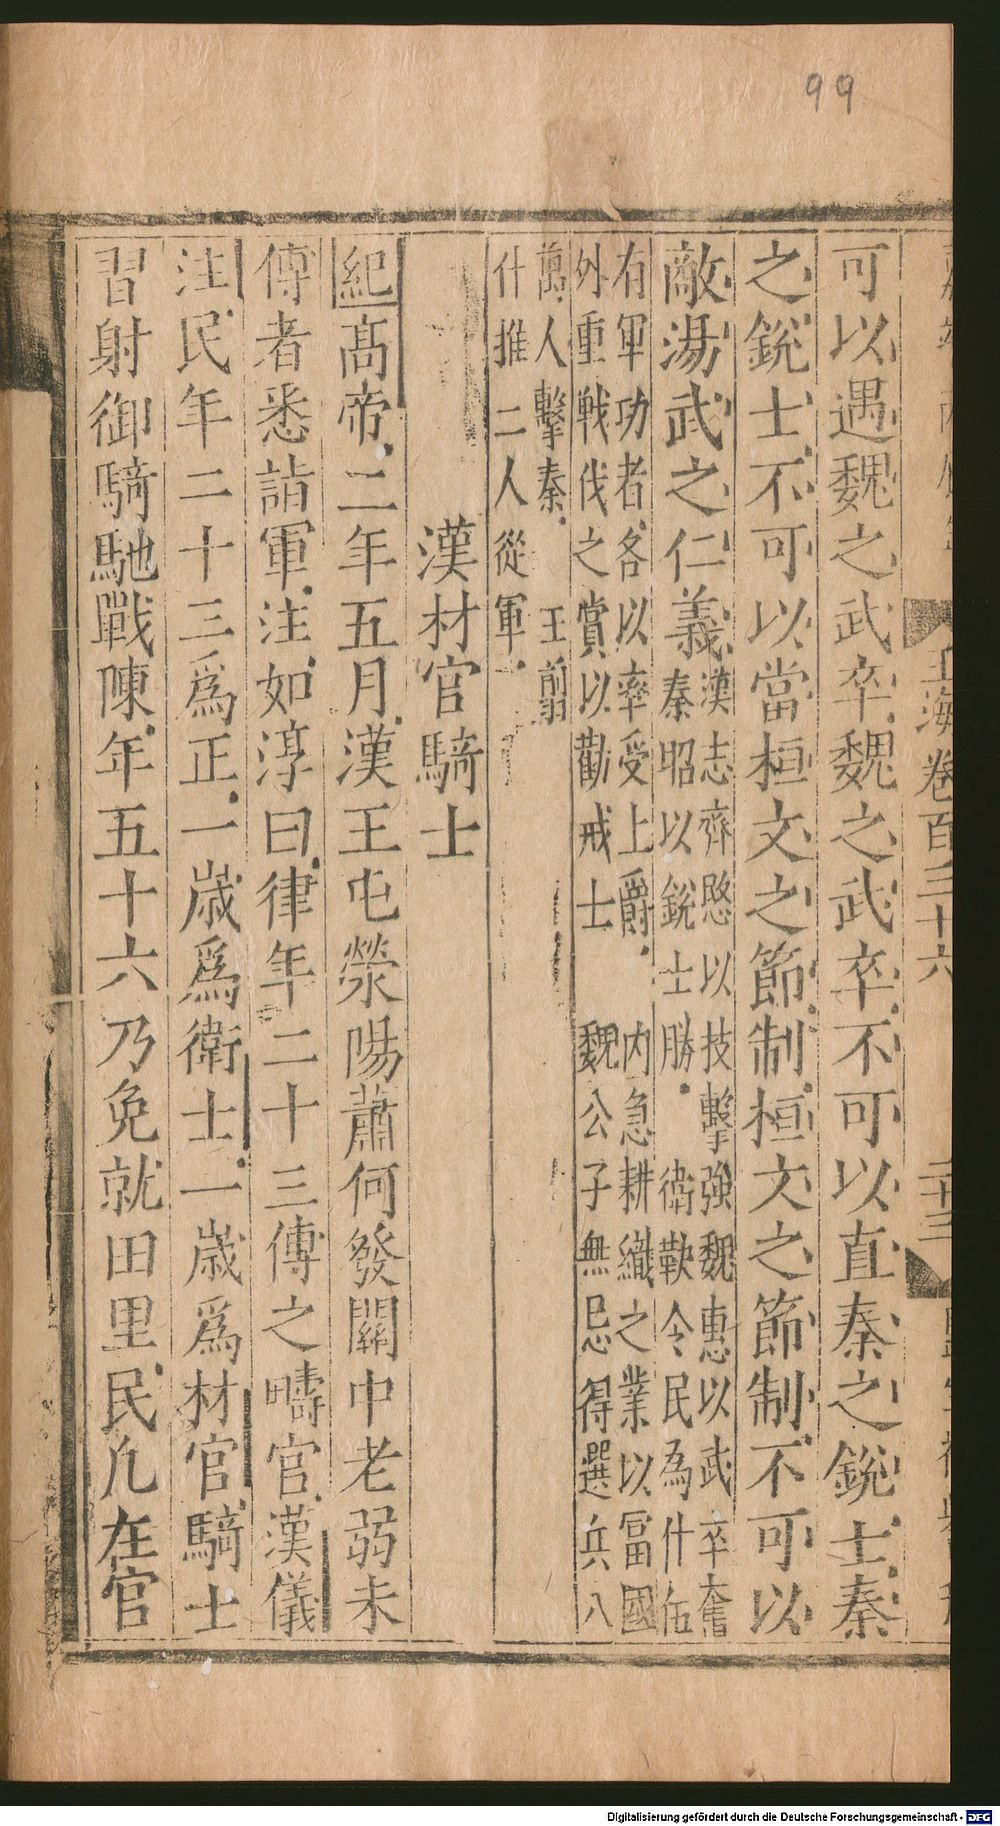 99
玉海卷百三十六
二十三
可以遇魏之武卒魏之武卒不可以直秦之銳士秦
之銳士不可以當桓文之節制桓文之節制不可以
敵湯武之仁義漢志齊愍以技擊強魏惠以武卒奮
秦昭以銳士勝 衛鞅令民為什伍
有軍功者各以率受上爵 内急耕織之業以富國
外重戰伐之賞以勸戒士 魏公子無忌得選兵八
萬人擊秦 王翦
什推二人從軍
漢材官騎士
紀高帝二年五月漢王屯滎陽蕭何發關中老弱未
傅者悉詣軍注如淳曰律年二十三傅之疇官漢儀
注民年二十三爲正一歲爲衛士一歲爲材官騎士
習射御騎馳戰陳年五十六乃免就田里民凡在官
Digitalisierung gefördert durch die Deutsche Forschungsgemeinschaft - DFG